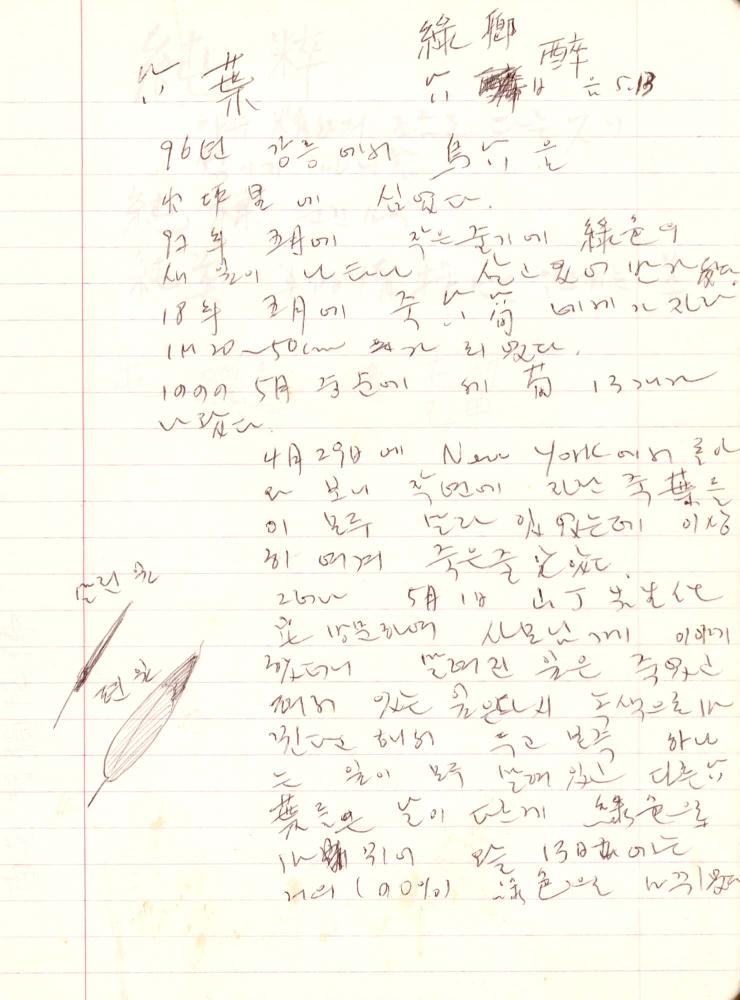 綠鄕
竹葉
竹醉日은 5.13
96년 강릉에서 烏竹은
에 심었다.
97年 五月에 작은 줄기에 綠色의
새 잎이 나타나 살고 있어 반가웠다.
18年 五月에 죽竹筍 네게가 자라
1M 20~50cm 가 되었다.
1999 5月 중순에 筍 13개가
나왔다.
4月 29日에 New York에서 돌아
와 보니 작년에 자란 죽葉들
이 모두 말라 있었는데 이상
히 여겨 죽은줄 알았다.
그러나 5月 1日 山丁 先生
방문하여 사모님께 이야기
하였더니 말려진 잎은 죽었고
펴져 있는 잎은 다시 녹색으로 바
뀐다고 해서 두고 보즉 하나
는 잎이 모두 말려 있고 다른 竹
葉들은 날이 다르게 綠色으로
바뀌어 오늘 13日에는
거의 (90%) 綠色으로 바뀌었다
말린 잎
편 잎